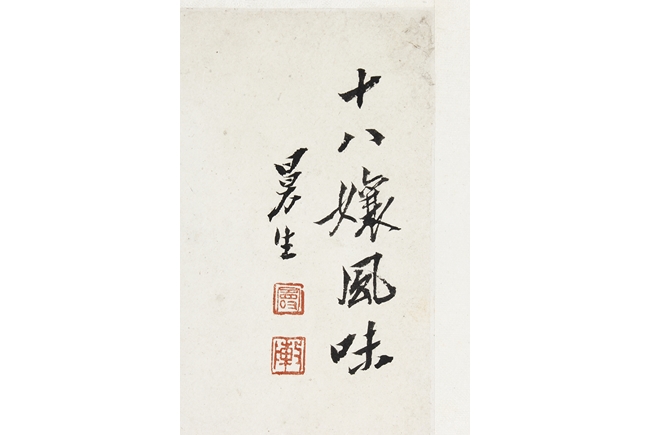 十八孃風味
曼生